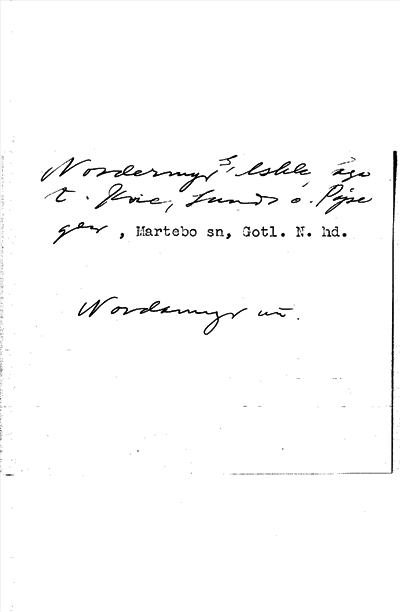 Nordermyr, ägo
t. Kvie, Lunds o. Pipe
gdr, Martebo sn, Gotl. N. hd.
Nordamyr un.